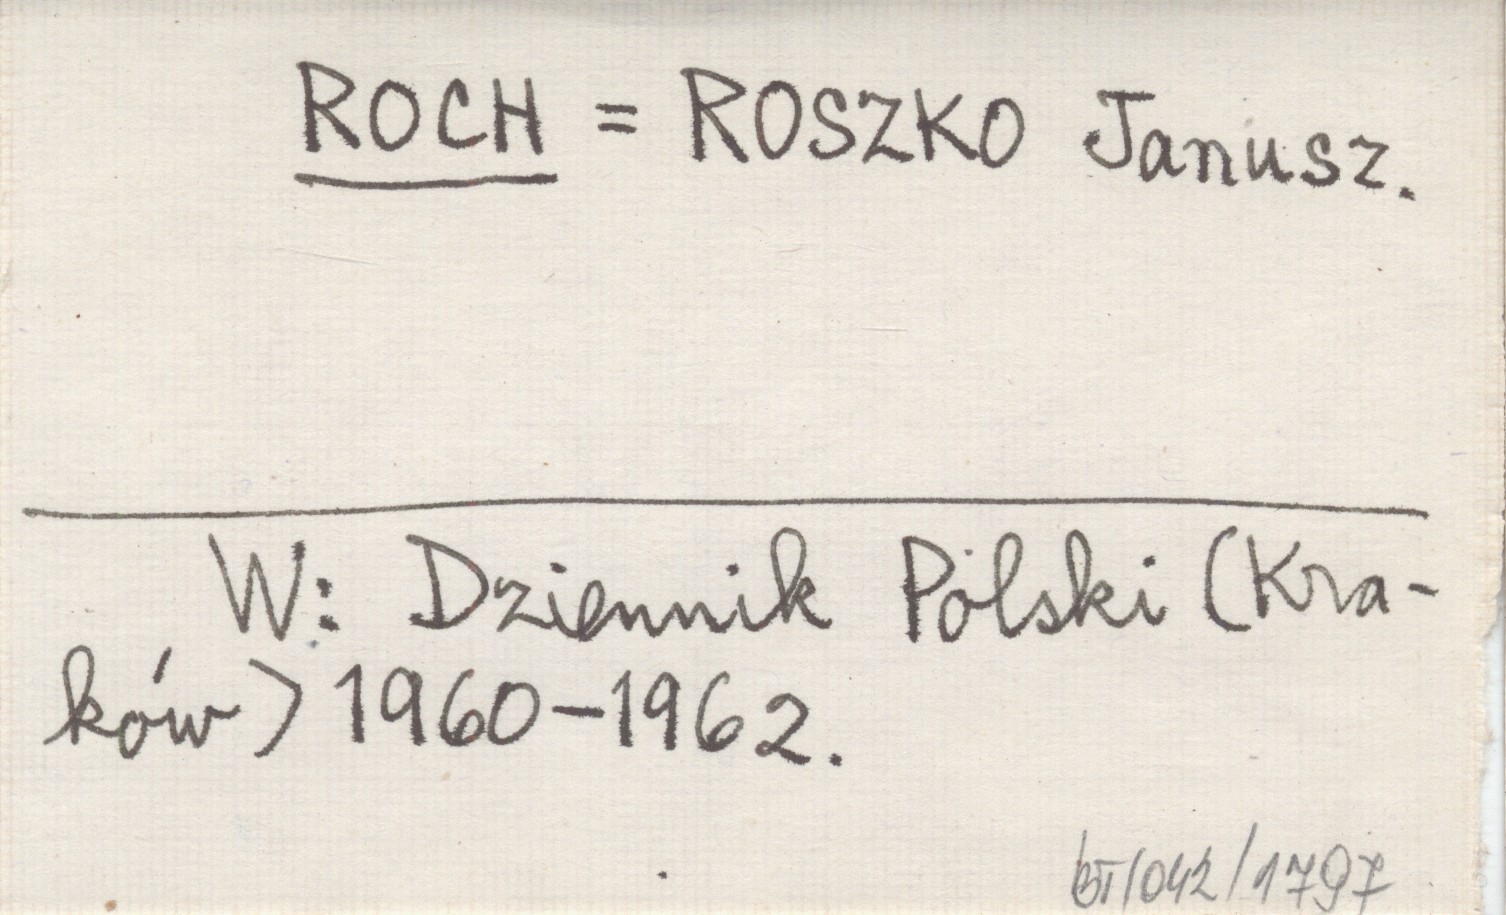 ROCH = ROSZKO Janusz.
W: Dziennik Polski (Kra-
ków) 1960-1962.
BT/042/1797